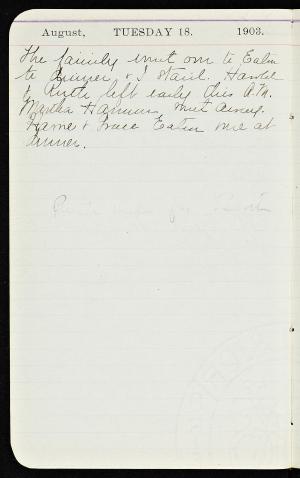 August, TUESDAY 18. 1903.
The family went over to Eaton
to dinner & I staid. Harold
& Ruth left early this A.M.
Martha Hannum went away.
& Grace Eaton were at
dinner.